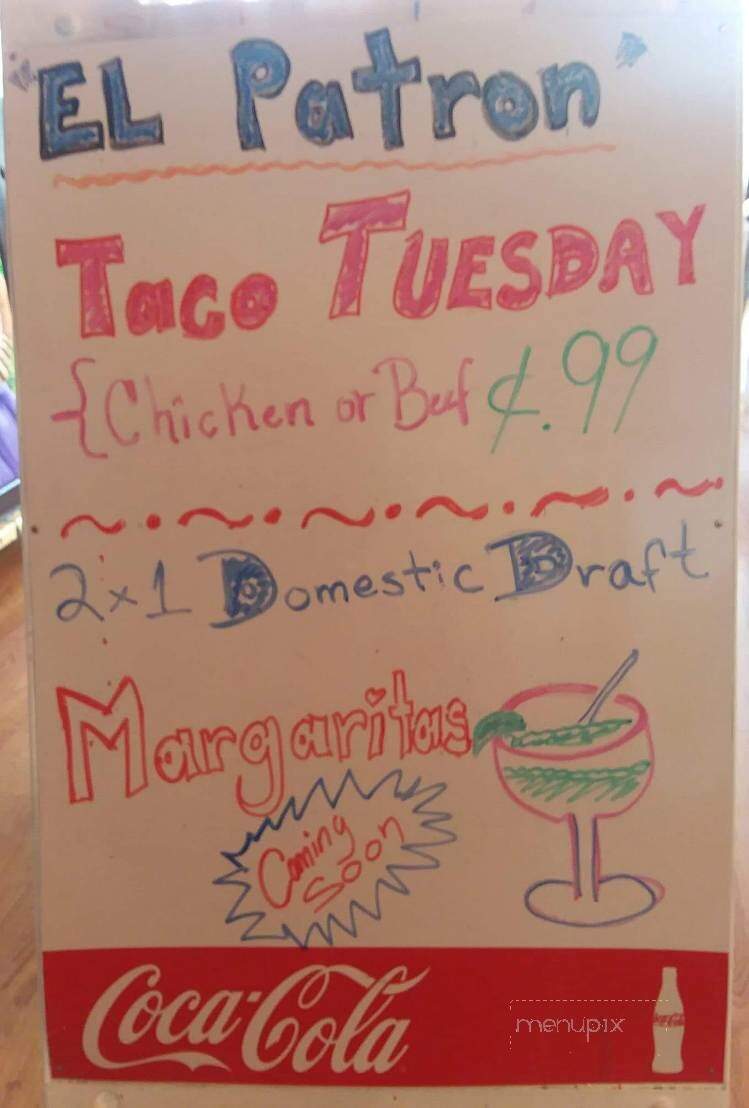 "EL Patron"
Taco TUESDAY
{Chicken or Beef ¢.99
2x1 Domestic Draft
Margaritas
Coming
Soon
Coca-Cola
menupix